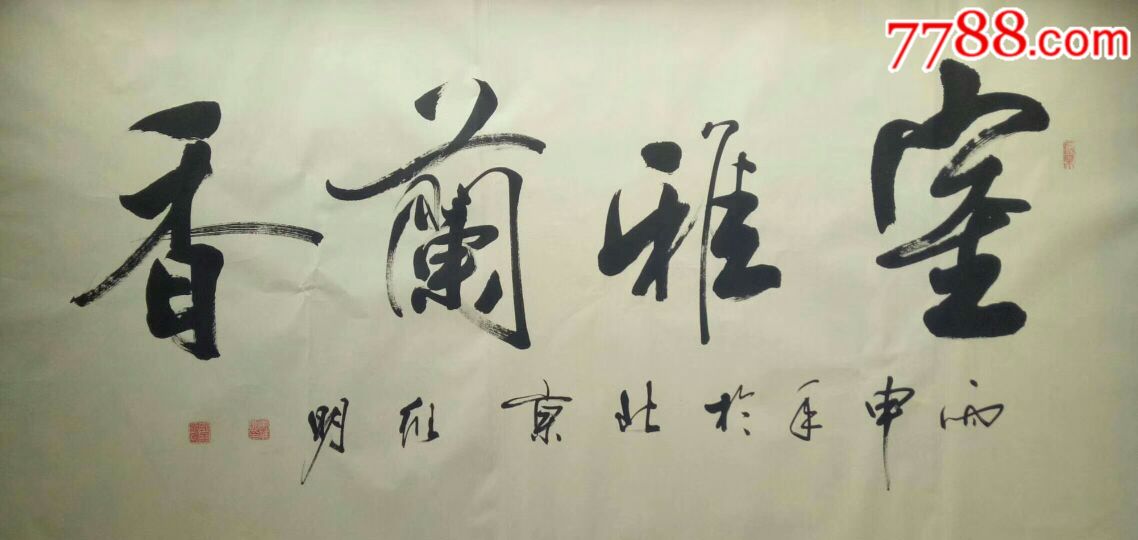 7788.com
室雅蘭香
丙申年於北京 明